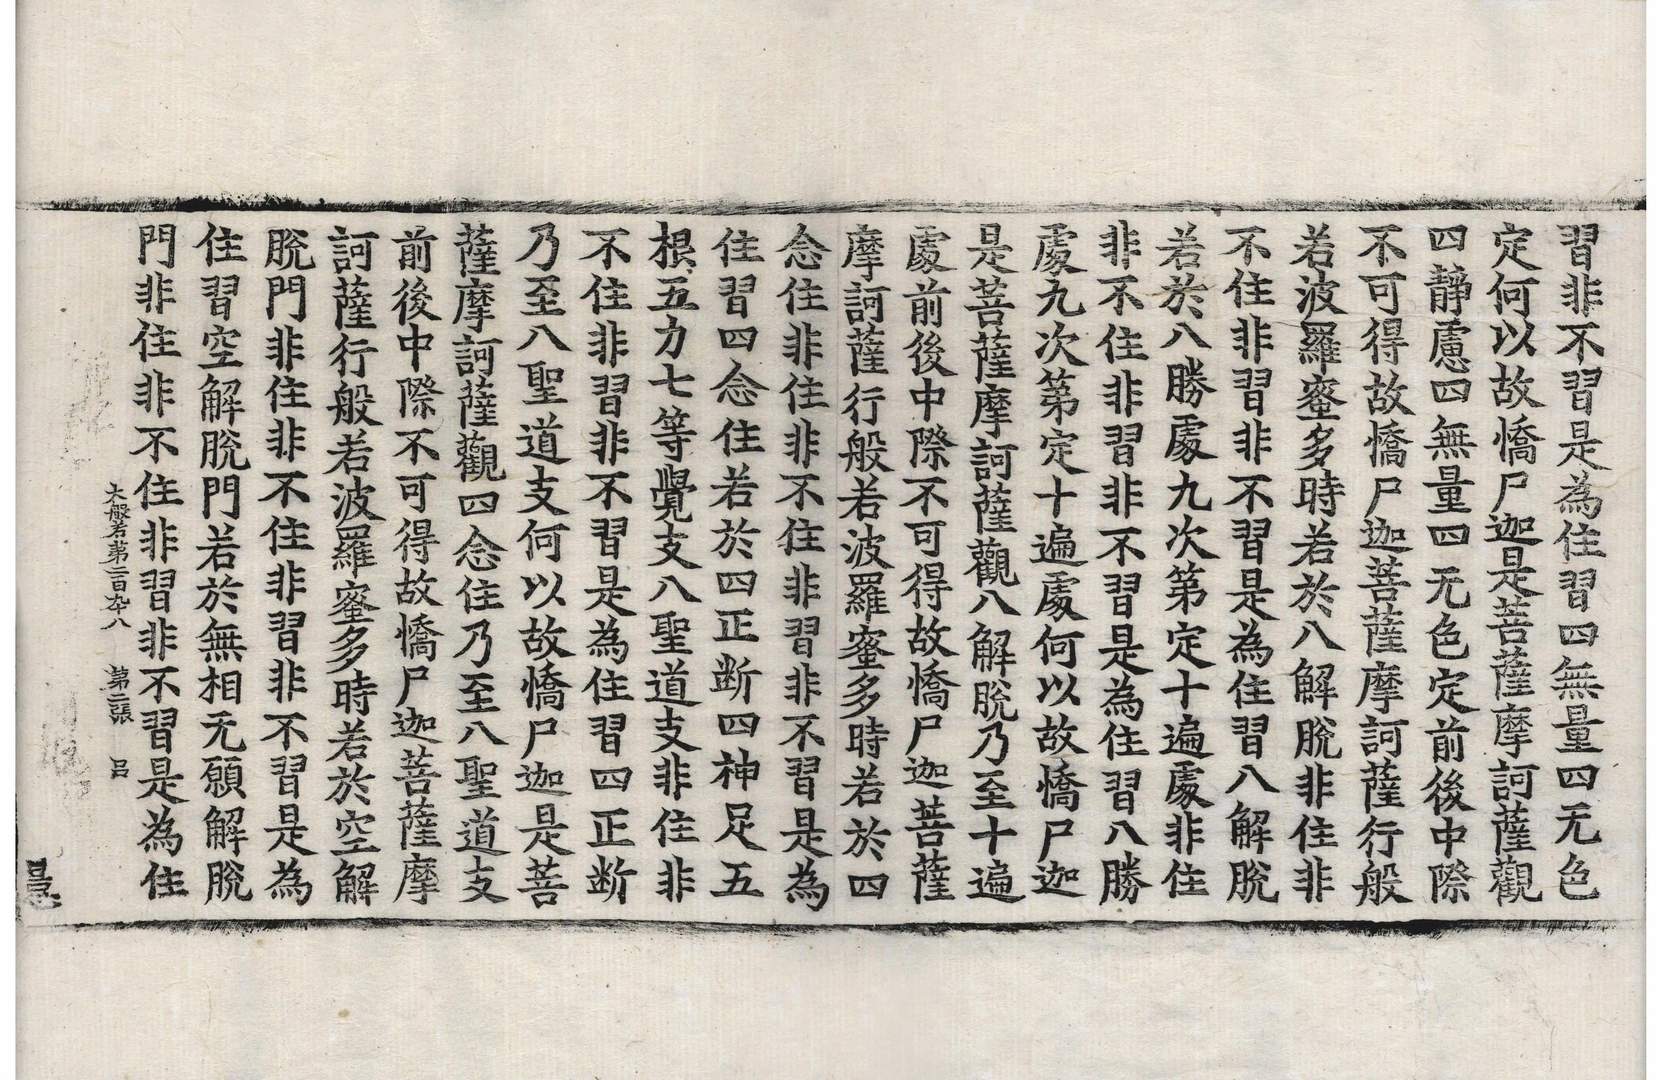 習非不習是為住習四無量四无色
定何以故憍尸迦是菩薩摩訶薩觀
四靜慮四無量四无色定前後中際
不可得故憍尸迦菩薩摩訶薩行般
若波羅蜜多時若於八解脫非住非
不住非習非不習是為住習八解脫
若於八勝處九次第定十遍處非住
非不住非習非不習是為住習八勝
處九次第定十遍處何以故憍尸迦
是菩薩摩訶薩觀八解脫乃至十遍
處前後中際不可得故憍尸迦菩薩
摩訶薩行般若波羅蜜多時若於四
念住非住非不住非習非不習是為
住習四念住若於四正断四神足五
根五力七等覺支八聖道支非住非
不住非習非不習是為住習四正断
乃至八聖道支何以故憍尸迦是菩
薩摩訶薩觀四念住乃至八聖道支
前後中際不可得故憍尸迦菩薩摩
訶薩行般若波羅蜜多時若於空解
脫門非住非不住非習非不習是為
住習空解脫門若於無相无願解脫
門非住非不住非習非不習是為住
大般若苐二百卆八 苐二張 呂